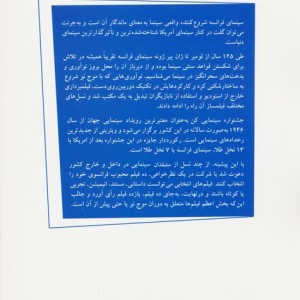 سینمای فرانسه شروع‌کننده واقعی سینما به معنای ماندگار آن است و به‌جرئت
می‌توان گفت در کنار سینمای آمریکا شناخته‌شده‌ترین و تأثیرگذارترین سینمای
دنیاست.
طی ۱۲۵ سال از لومیر تا ژان پیر ژونه سینمای فرانسه تقریباً همیشه در تلاش
برای شکستن قواعد سنتی سینما بوده و از دیرباز آن را محل بروز نوآوری و
بدعت‌های سحرانگیز در سینما می‌شناسیم. نوآوری‌هایی که با موج نو شروع
به ساختارشکنی کرد و کارکردهایش در تکنیک دوربین‌روی‌دست، فیلمبرداری
خارج از استودیو و استفاده از نابازیگران تبدیل به یک مکتب شد و نسل‌های
مختلف فیلمساز آن راه را ادامه دادند.
جشنواره سینمایی کن به‌عنوان معتبرترین رویداد سینمایی جهان از سال
۱۹۴۶ به‌صورت سالانه در این کشور برگزار می‌شود و ویترینی از جدیدترین
رخدادهای سینمایی است. رکورددار جایزه در این جشنواره بعد از امریکا با
۱۳ نخل طلا، سینمای فرانسه با ۷ نخل طلا است.
با این پیشینه، از چند نسل از منتقدان سینمایی در داخل و خارج کشور
دعوت شد با شرکت در یک نظرخواهی، ده فیلم محبوب فرانسوی خود را
انتخاب کنند. فیلم‌های انتخابی می‌توانست داستانی، مستند، انیمیشن، تجربی
یا کوتاه باشند و درنهایت، به‌جای ده فیلم، یازده فیلم رأی آورد و جالب
این‌که بخش اعظم فیلم‌ها متعلق به دوران موج نو یا حتی پیش از آن است.